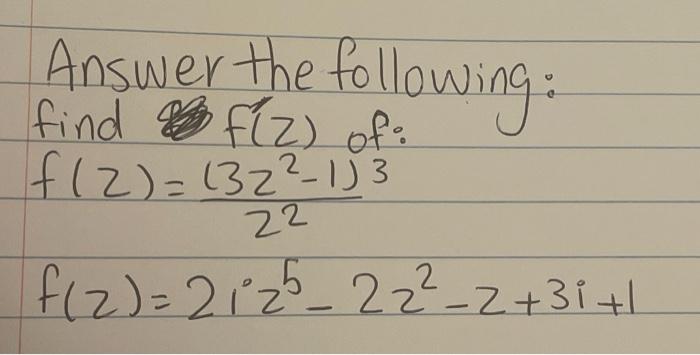 Answer the following:
find f'(z) of:
f(z)=(3z²-1)³
z²
f(z)=2iz⁵-2z²-z+3i+1